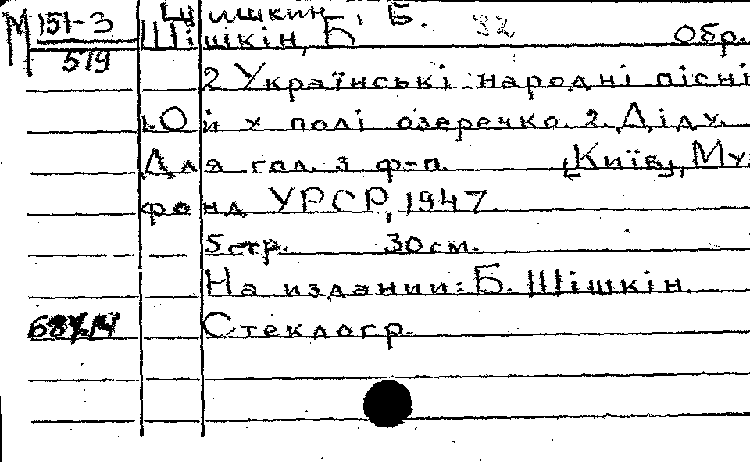 Шишкин, Б. 32
М 151-3 Шішкін, Б Обр.
519
2 Українські народні пісні
1. Ой у полі озеречко. 2. Діду.
Для гол. з ф-п. [Київ], Му
фонд УРСР, 1947
5 стр. 30 см.
На издании: Б. Шішкін.
Стеклогр.